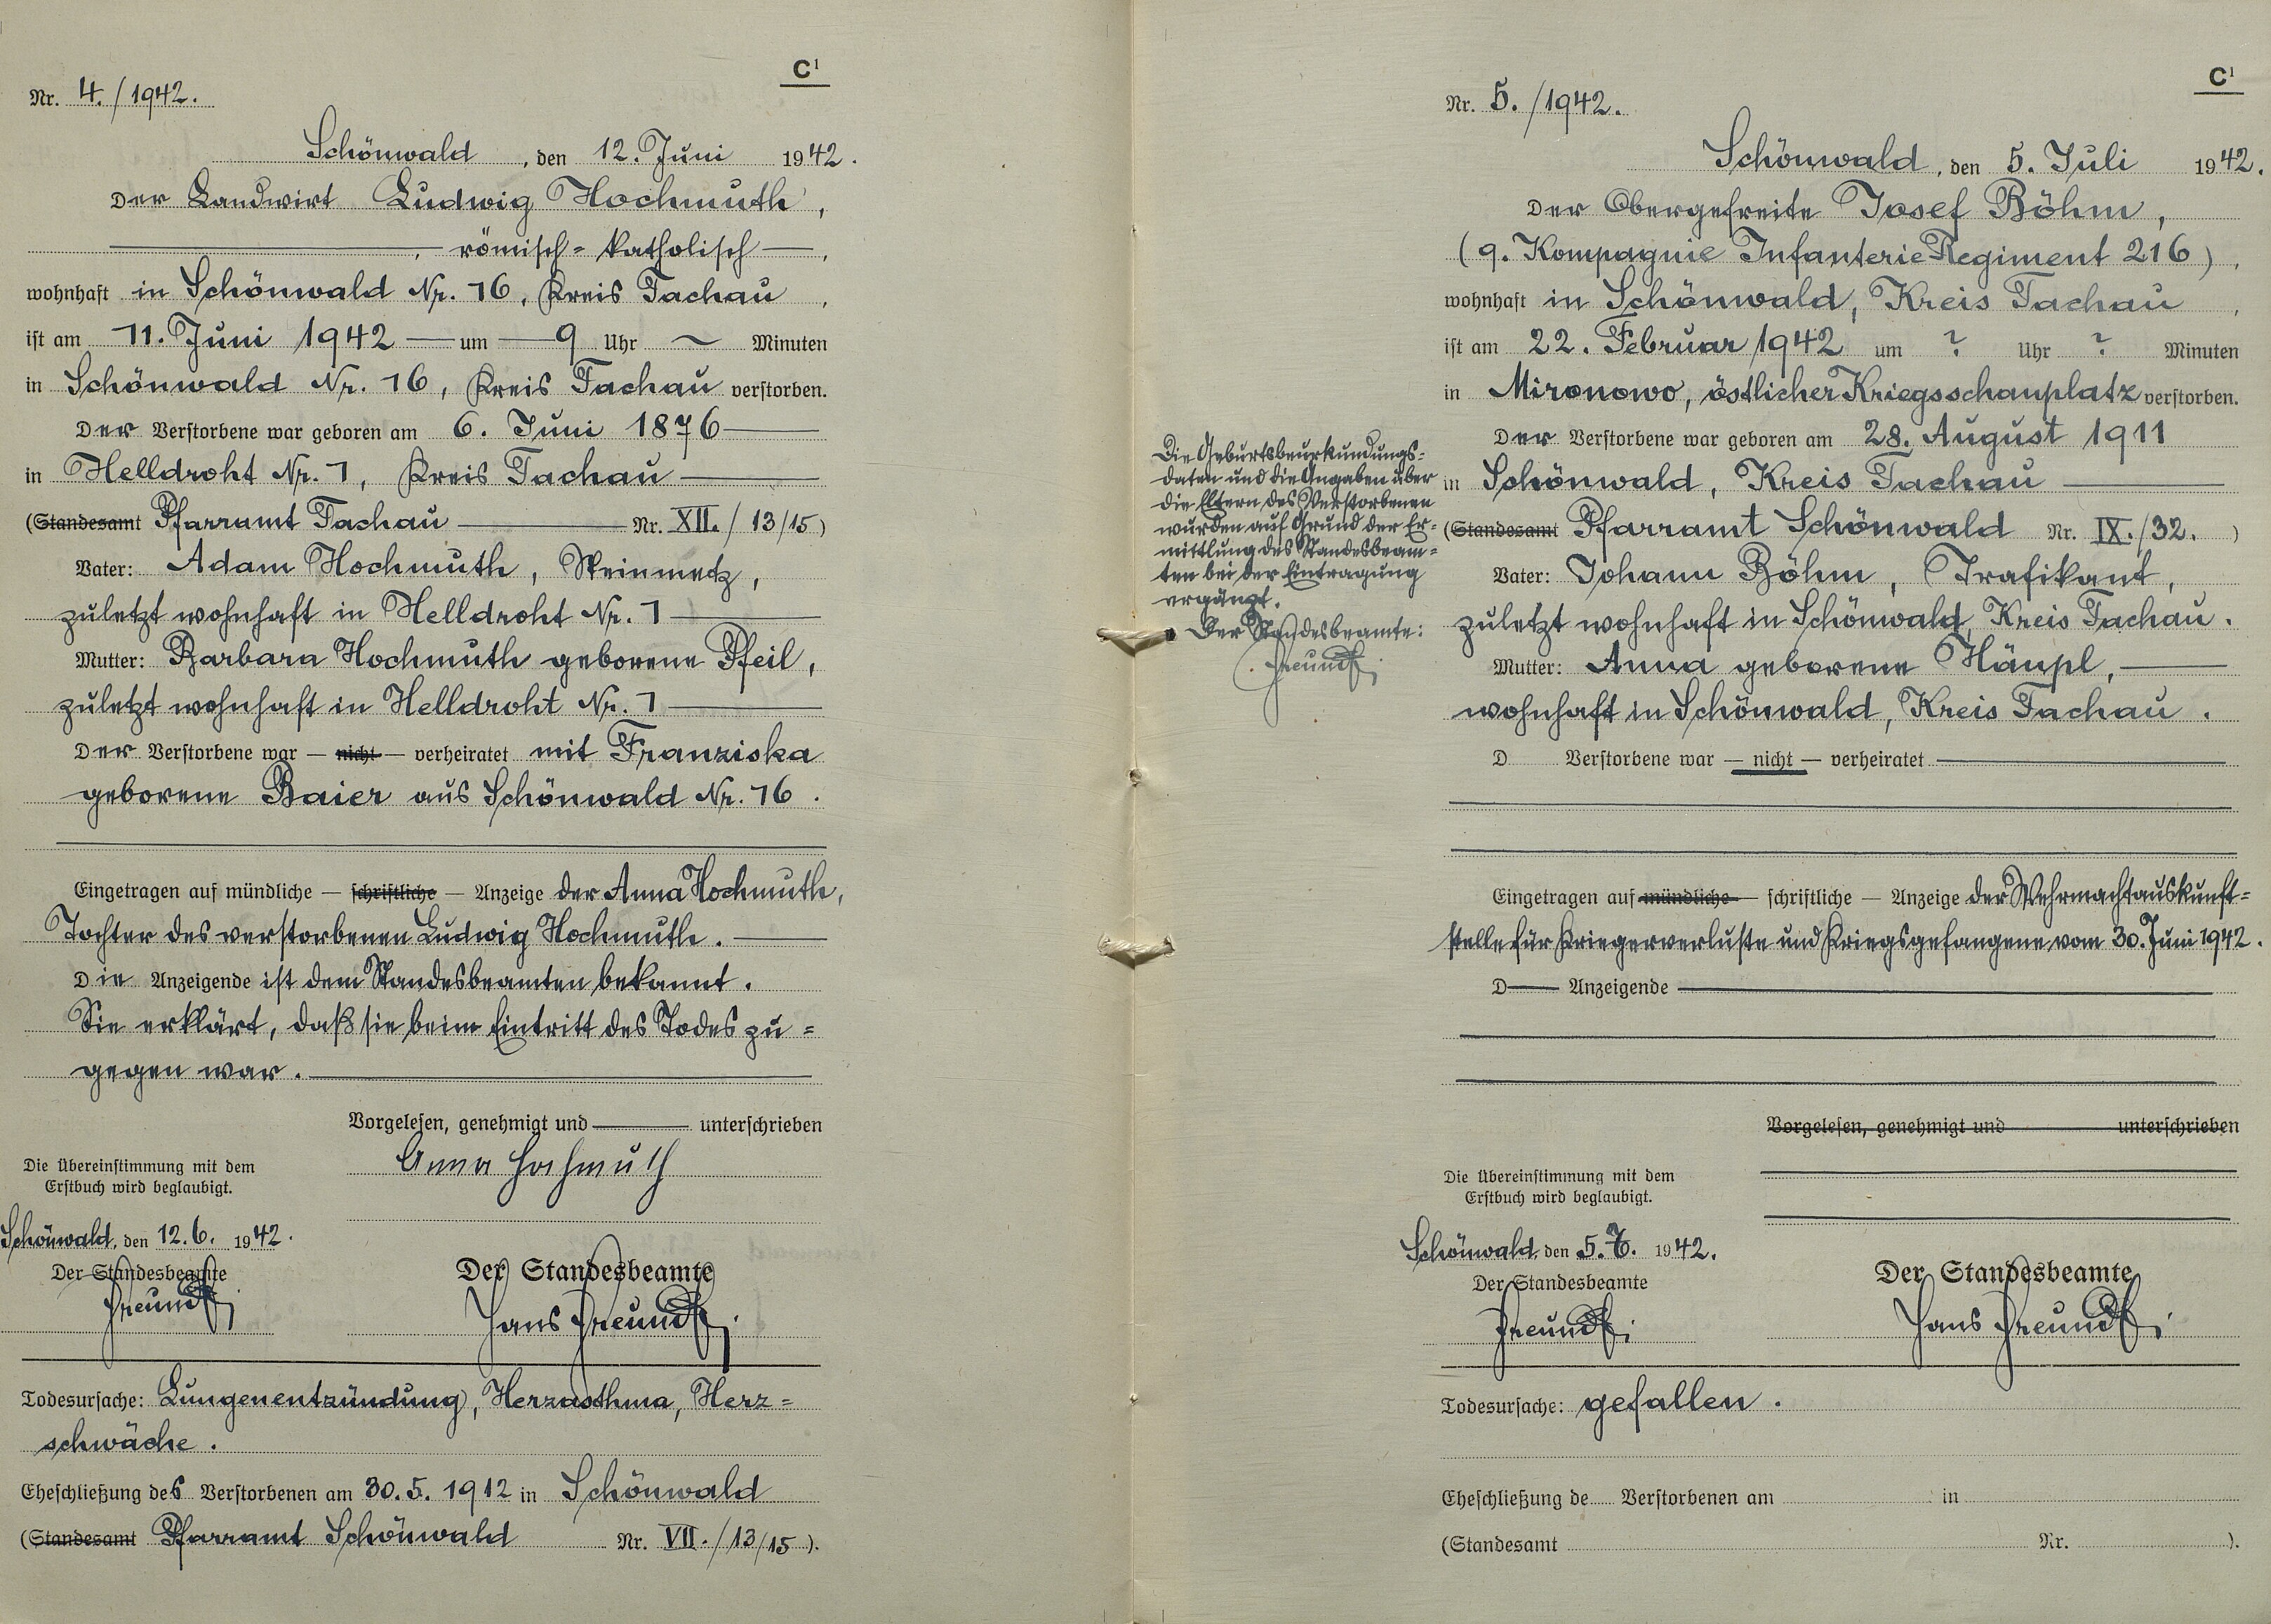 C¹
Nr. 4./1942.
Schönwald, den 12. Juni 1942.
Der Landwirt Ludwig Hochmuth,
römisch-katholisch,
wohnhaft in Schönwald Nr. 16, Kreis Tachau,
ist am 11. Juni 1942 um 9 Uhr Minuten
in Schönwald Nr. 16, Kreis Tachau verstorben.
Der Verstorbene war geboren am 6. Juni 1876
in Helldroht Nr. 1, Kreis Tachau
(Standesamt Pfarramt Tachau Nr. XII./13/15)
Vater: Adam Hochmuth, Steinmetz,
zuletzt wohnhaft in Helldroht Nr. 1
Mutter: Barbara Hochmuth geborene Pfeil,
zuletzt wohnhaft in Helldroht Nr. 1
Der Verstorbene war — nicht — verheiratet mit Franziska
geborene Baier aus Schönwald Nr. 16.
Eingetragen auf mündliche — schriftliche — Anzeige der Anna Hochmuth,
Tochter des verstorbenen Ludwig Hochmuth.
Die Anzeigende ist dem Standesbeamten bekannt.
Sie erklärt, daß sie beim Eintritt des Todes zu=
gegen war.
Vorgelesen, genehmigt und unterschrieben
Anna Hochmuth
Die Übereinstimmung mit dem
Erstbuch wird beglaubigt.
Schönwald, den 12.6. 1942.
Der Standesbeamte
Freundl
Der Standesbeamte
Hans Freundl
Todesursache: Lungenentzündung, Herzasthma, Herz=
schwäche.
Eheschließung des Verstorbenen am 30.5.1912 in Schönwald
(Standesamt Pfarramt Schönwald Nr. VII./13/15).
C¹
Nr. 5./1942.
Schönwald, den 5. Juli 1942.
Der Obergefreite Josef Böhm,
(9. Kompagnie Infanterie Regiment 216),
wohnhaft in Schönwald, Kreis Tachau,
ist am 22. Februar 1942 um ? Uhr ? Minuten
in Mironowo, östlicher Kriegsschauplatz verstorben.
Der Verstorbene war geboren am 28. August 1911
in Schönwald, Kreis Tachau
(Standesamt Pfarramt Schönwald Nr. IX./32.)
Vater: Johann Böhm, Trafikant,
zuletzt wohnhaft in Schönwald, Kreis Tachau.
Mutter: Anna geborene Häupl,
wohnhaft in Schönwald, Kreis Tachau.
D Verstorbene war — nicht — verheiratet
Die Geburtsbeurkundungs-
daten und die Angaben über
die Eltern des Verstorbenen
wurden auf Grund der Er-
mittlung des Standesbeam-
ten bei der Eintragung
ergänzt.
Der Standesbeamte:
Freundl
Eingetragen auf mündliche — schriftliche — Anzeige der Wehrmachtauskunft=
stelle für Kriegerverluste und Kriegsgefangene vom 30. Juni 1942.
D Anzeigende
Vorgelesen, genehmigt und unterschrieben
Die Übereinstimmung mit dem
Erstbuch wird beglaubigt.
Schönwald, den 5.7. 1942.
Der Standesbeamte
Freundl
Der Standesbeamte
Hans Freundl
Todesursache: gefallen.
Eheschließung de Verstorbenen am in
(Standesamt Nr. ).